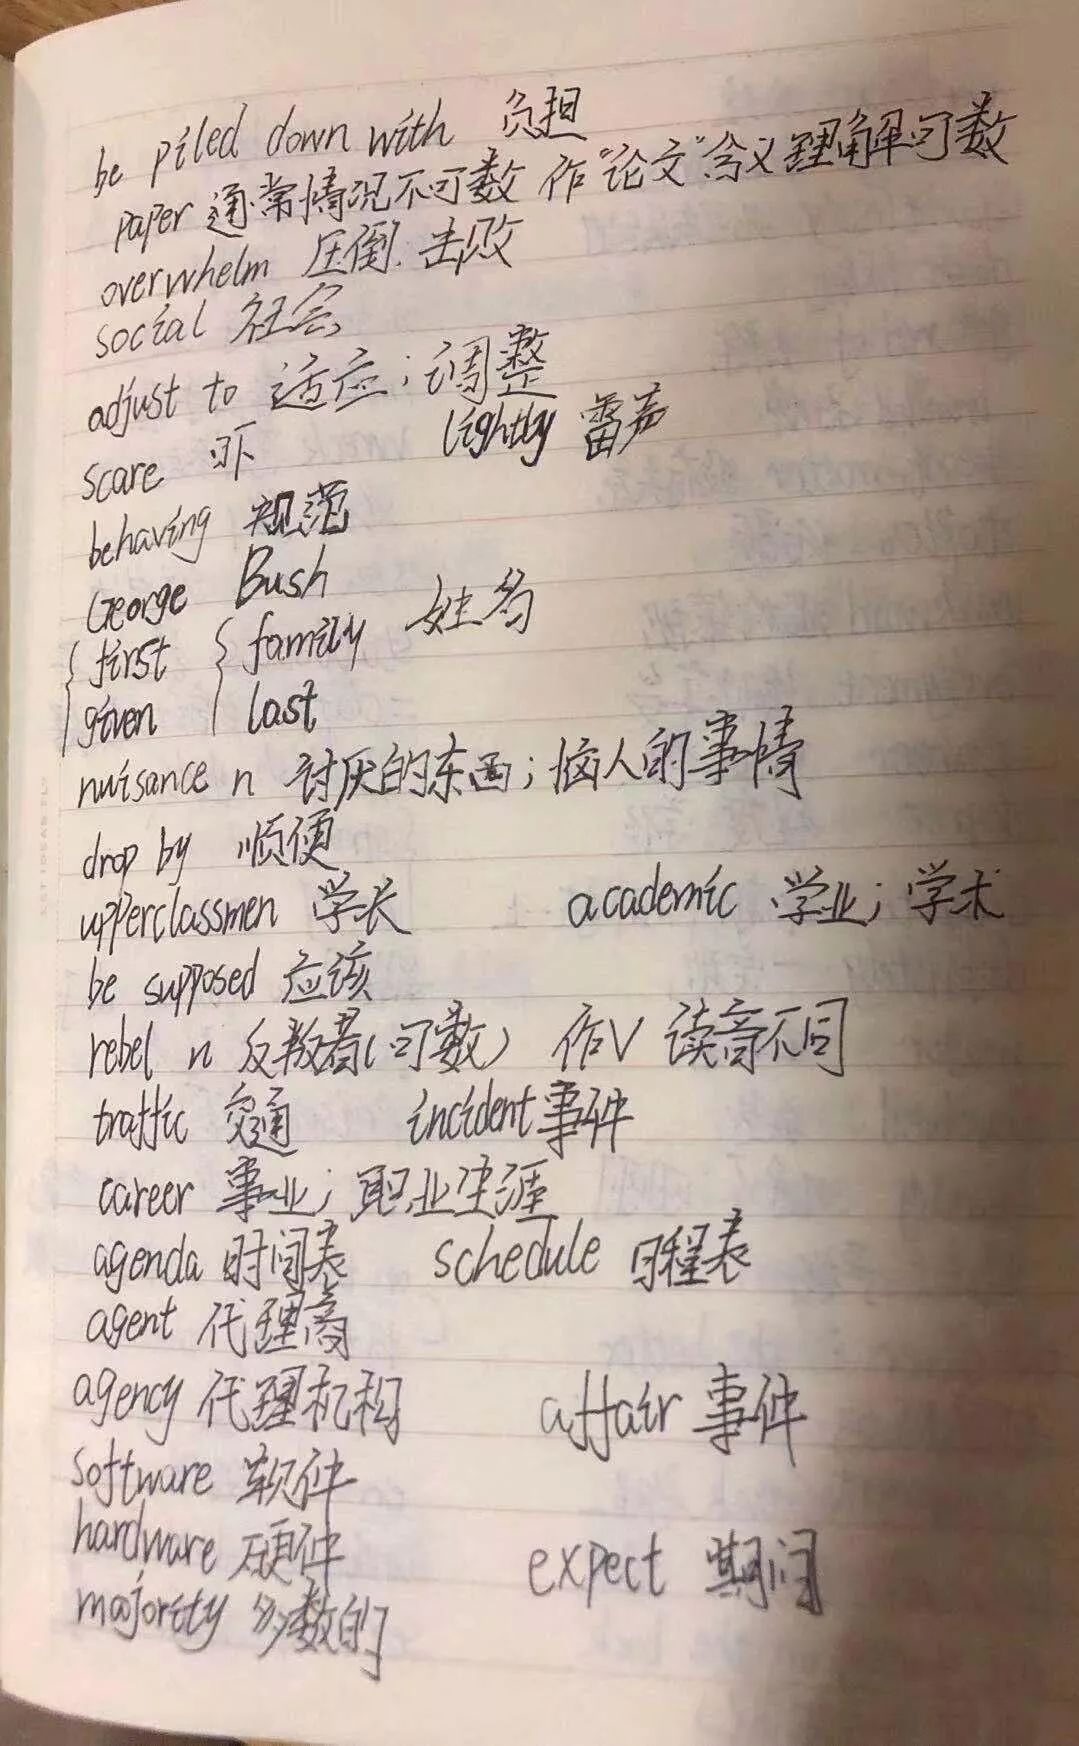 be piled down with 负担
paper 通常情况不可数 作“论文”含义理解可数
overwhelm 压倒.击败
social 社会
adjust to 适应;调整
scare 吓 lightly 雷声
behaving 规范
George Bush
first family 姓名
given last
nuisance n 讨厌的东西;恼人的事情
drop by 顺便
upperclassmen 学长 academic 学业;学术
be supposed 应该
rebel n 反叛者(可数) 作V 读音不同
traffic 交通 incident 事件
career 事业;职业生涯
agenda 时间表 schedule 日程表
agent 代理商
agency 代理机构 affair 事件
software 软件
hardware 硬件 expect 期间
majority 多数的